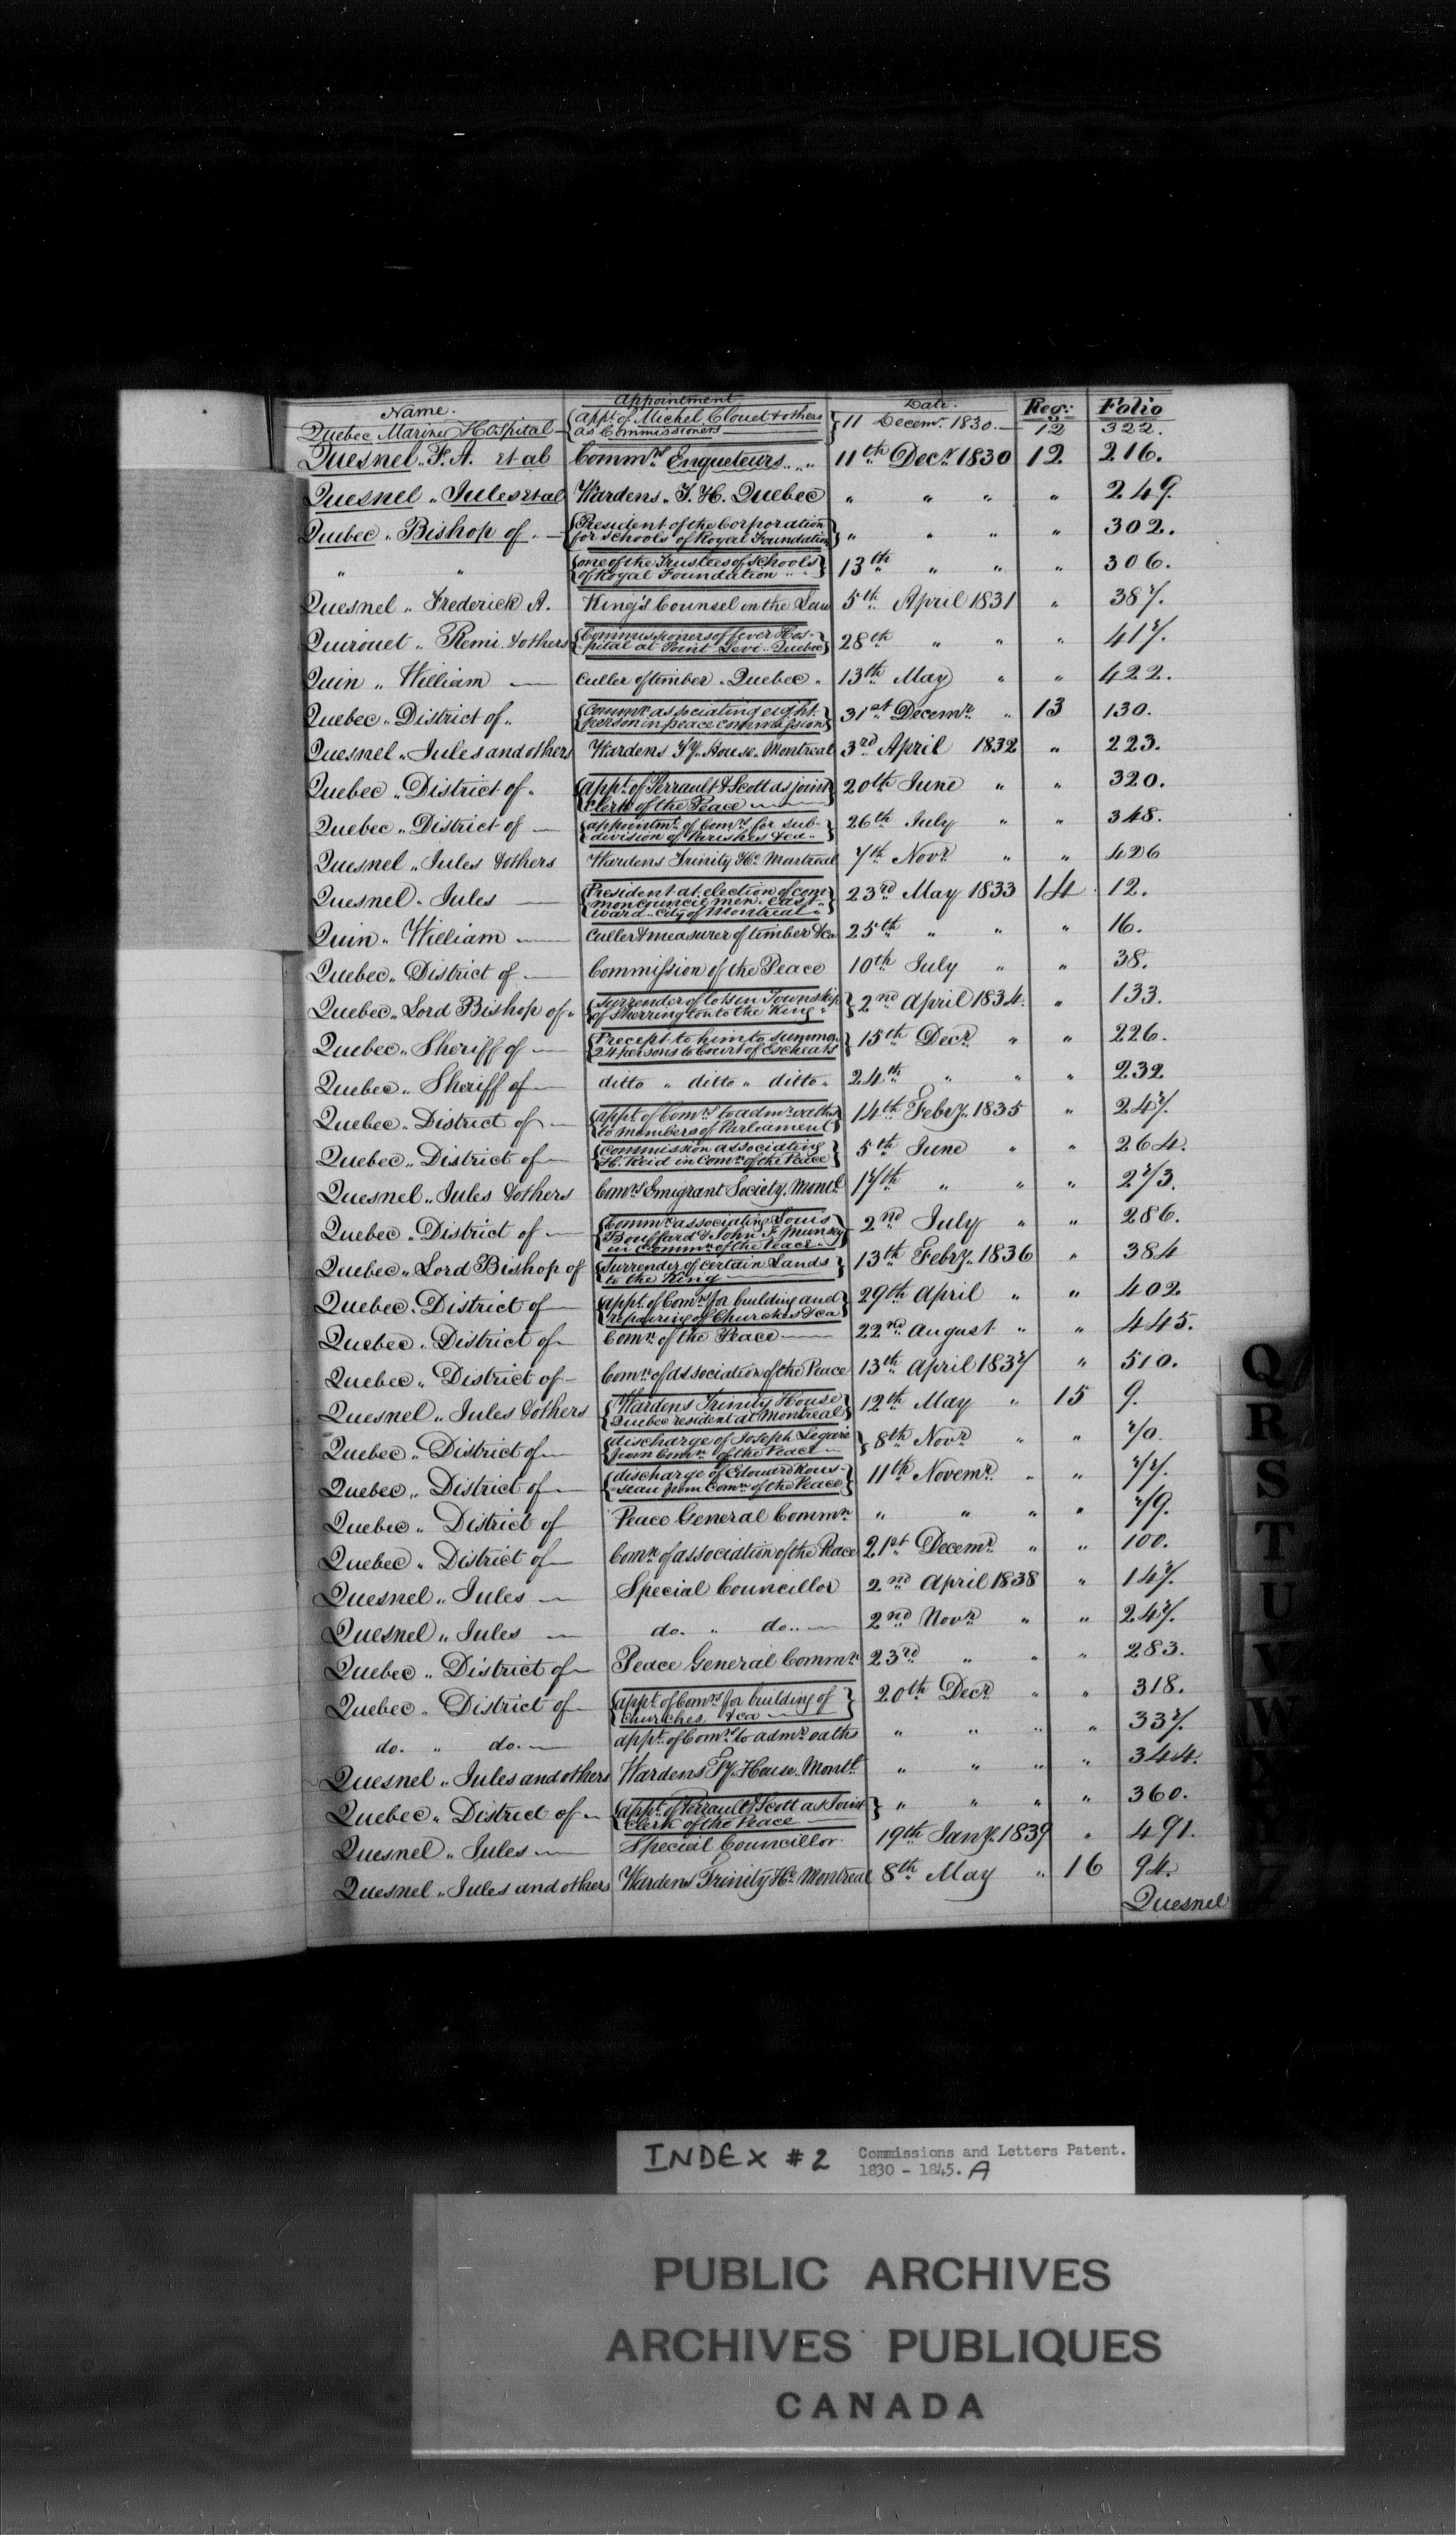 Name. Appointment. Date. Reg: Folio
Quebec Marine Hospital — {appt. of Michel Clouet & others
as Commissioners — } 11 Decemr. 1830. — 12 322.
Quesnel. F. A. et al Commrs. Enqueteurs. „ „ 11th Decr. 1830 12 216.
Quesnel „ Jules et al Wardens „ T. H. Quebec „ „ „ „ 249.
Quebec „ Bishop of. — {President of the Corporation
for schools of Royal Foundation} „ „ „ „ 302.
„ „ {one of the Trustees of schools
of Royal Foundation „ „} 13th „ „ „ 306.
Quesnel „ Frederick A. King's Counsel in the Law 5th April 1831 „ 387.
Quirouet „ Remi. & others {Commissioners of fever Hos-
pital at Point Levi. Quebec} 28th „ „ „ 417.
Quin „ William — Culler of timber „ Quebec „ 13th May „ „ 422.
Quebec „ District of „ {Commn. associating eight
person in peace commission} 31st Decemr. „ 13 130.
Quesnel „ Jules and others Wardens Ty. House. Montreal 3rd April 1832 „ 223.
Quebec „ District of „ {appt. of Perrault & Scott as joint
Clerk of the Peace — 20th June „ „ 320.
Quebec „ District of — {appointmt. of Comrs. for sub-
division of Parishes &ca „} 26th July „ „ 348.
Quesnel „ Jules & others Wardens Trinity He. Montreal 7th Novr. „ „ 426
Quesnel „ Jules — {President at election of com
mon council men. East
ward „ City of Montreal „} 23rd May 1833 14 12.
Quin „ William — Culler & measurer of timber &ca 25th „ „ „ 16.
Quebec „ District of — Commission of the Peace 10th July „ „ 38.
Quebec „ Lord Bishop of „ {surrender of lots in Township
of Sherrington to the King „} 2nd April 1834. „ 133.
Quebec „ Sheriff of — {Precept to him to summon
24 persons to Court of Escheats} 15th Decr. „ „ 226.
Quebec „ Sheriff of — ditto „ ditto „ ditto „ 24th „ „ „ 232
Quebec „ District of — {appt. of Comrs. to admr. oaths
to members of Parliament} 14th Febry. 1835 „ 247.
Quebec „ District of — {Commission associating
H. Reid in Comn. of the Peace} 5th June „ „ 264.
Quesnel „ Jules & others Comrs. Emigrant Society. Montl. 17th „ „ „ 273.
Quebec „ District of — {Commn. associating Louis
Bouffard & John F. Munsey
in Commn. of the Peace „} 2nd July „ „ 286.
Quebec „ Lord Bishop of {Surrender of certain Lands
to the King —} 13th Febry. 1836 „ 384
Quebec „ District of — {appt. of Comrs. for building and
repairing of Churches &ca} 29th April „ „ 402
Quebec „ District of — Comn. of the Peace — 22nd August „ „ 445.
Quebec „ District of — Comn. of association of the Peace 13th April 1837 „ 510.
Quesnel „ Jules & others {Wardens Trinity House
Quebec resident at Montreal} 12th May „ 15 9.
Quebec „ District of — {discharge of Joseph Legaré
from Comn. of the Peace —} 8th Novr. „ „ 70.
Quebec „ District of — {discharge of Edouard Rous-
seau from Comn. of the Peace} 11th Novemr. „ „ 77.
Quebec „ District of Peace General Commn. „ „ „ „ 79.
Quebec „ District of — Comn. of association of the Peace 21st Decemr. „ „ 100.
Quesnel „ Jules — Special Councillor 2nd April 1838 „ 147.
Quesnel „ Jules — do. „ do. — 2nd Novr. „ „ 247.
Quebec „ District of — Peace General Commn. 23rd „ „ „ 283.
Quebec „ District of — {appt. of Comrs. for building of
Churches &ca —} 20th Decr. „ „ 318.
do. „ do. — appt. of Comrs. to admr. oaths „ „ „ „ 337.
Quesnel „ Jules and others Wardens Ty. House. Montl. „ „ „ „ 344.
Quebec „ District of — {appt. of Perrault & Scott as Joint
Clerk of the Peace —} „ „ „ „ 360.
Quesnel „ Jules — Special Councillor. 19th Jany. 1839 „ 491.
Quesnel „ Jules and others Wardens Trinity He. Montreal 8th May „ 16 94.
Quesnel
Q
R
S
T
U
V
W
INDEX # 2 Commissions and Letters Patent.
1830 - 1845. A
PUBLIC ARCHIVES
ARCHIVES PUBLIQUES
CANADA